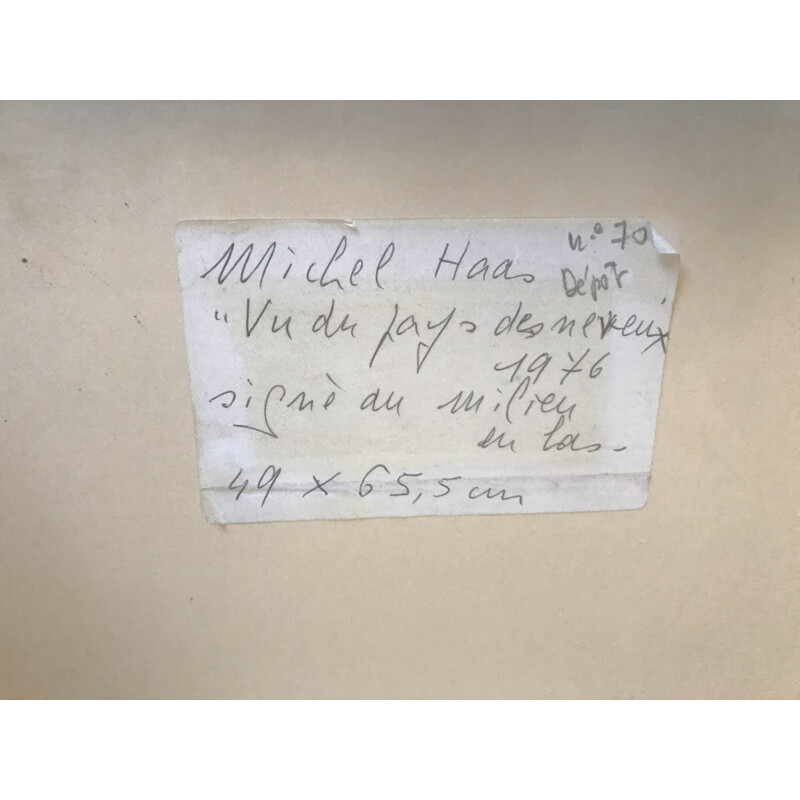 Michel Haas
n° 70
Dépôt
"Vu du pays des neveux
1976
signé au milieu
en bas-
49 x 65,5 cm